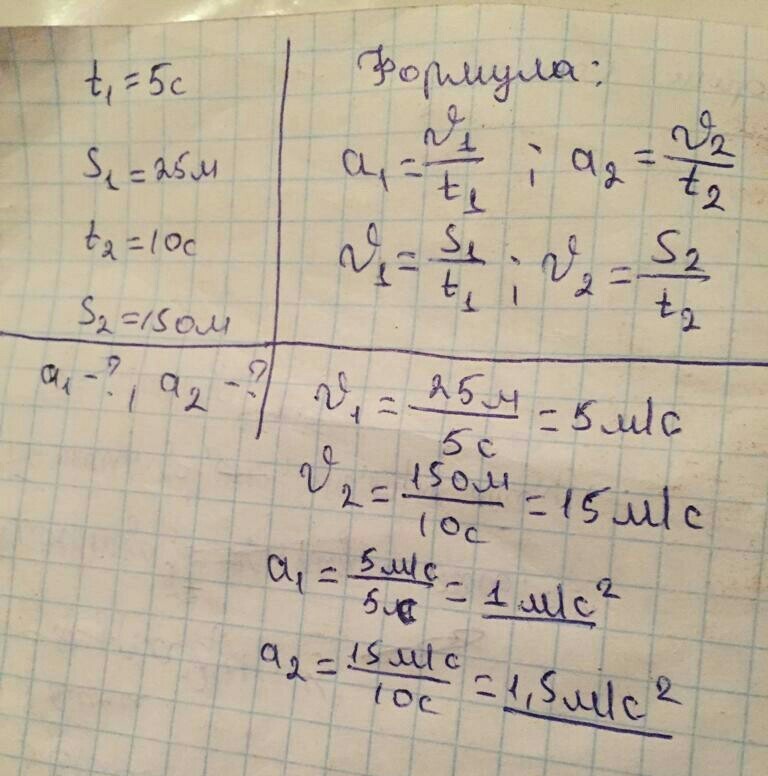 t₁ = 5с
S₁ = 25м
t₂ = 10с
S₂ = 150м
a₁ - ?, a₂ - ?
Формула:
a₁ = v₁/t₁ ; a₂ = v₂/t₂
v₁ = S₁/t₁ ; v₂ = S₂/t₂
v₁ = 25м/5с = 5м/с
v₂ = 150м/10с = 15м/с
a₁ = 5м/с/5с = 1м/с²
a₂ = 15м/с/10с = 1,5м/с²